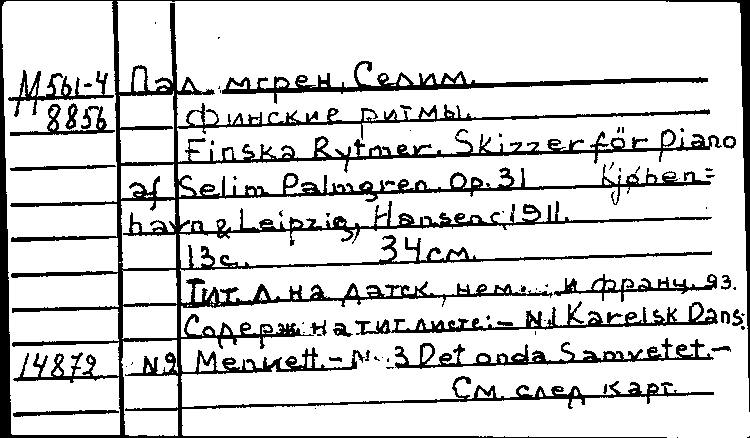 М561-4 Пал мгрен, Селим.
8856 Финские ритмы.
Finska Rytmer. Skizzer för piano
af Selim Palmgren. Op. 31 Kjøben=
havn & Leipzig, Hansen, c, 1911.
13 с. 34 см.
Тит. л. на датск., нем... и франц. яз.
Содерж. на тит. листе: – N.1 Karelsk Dans.
14872 N2 Menuett. – N. 3 Det onda Samvetet. –
См. след карт.